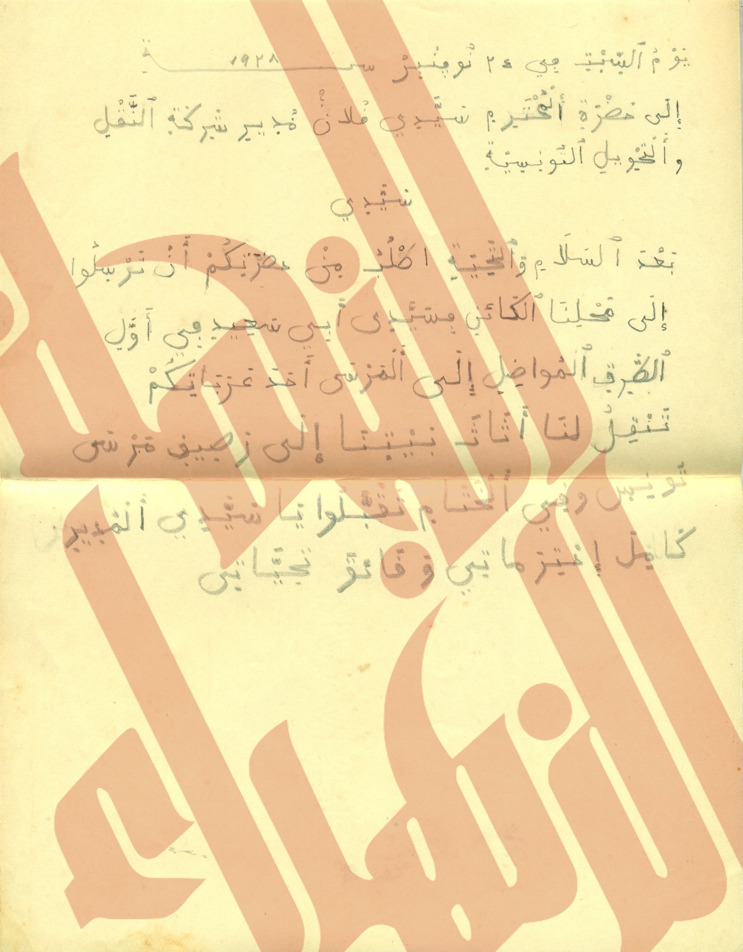 يَوْمُ ٱلسَّبْتِ فِي ٢٤ نُوفَمْبِرْ سنـــــة ١٩٢٨
إِلَى حَضْرَةِ ٱلْمُحْتَرَمِ سَيِّدِي فُلَانٌ مُدِير شَرِكَةِ ٱلنَّقْلِ
وٱلتَّحْوِيلِ ٱلتُّونِسِيَّةِ
سَيِّدِي
بَعْدَ ٱلسَّلَامِ وَٱلتَّحِيَّةِ اطْلُبُ مِنْ حضْرَتِكُمْ أَنْ تُرْسِلُوا
إِلَى مَحَلِنَا ٱلْكَائِنِ بِسَيِّدِي أَبِي سَعِيدٍ فِي أَوَّلِ
ٱلطَّرِيقِ ٱلْمُوَاصِلِ إِلَى ٱلْمَرْسَى أَحَدَ عَرَبَاتِكُمْ
تَنْقِلُ لنَا أَثَاثَ بَيْتِنَا إِلَى رَصِيفِ مَرْسَى
تُونِسَ وفِي ٱلْخِتَامِ تَقَبَّلُوا يَا سَيِّدِي ٱلْمُدِير
كَامِلَ إِحْتِرَمَاتِي وَ فَائِقَ تَحِيَّاتِي
الأنهار